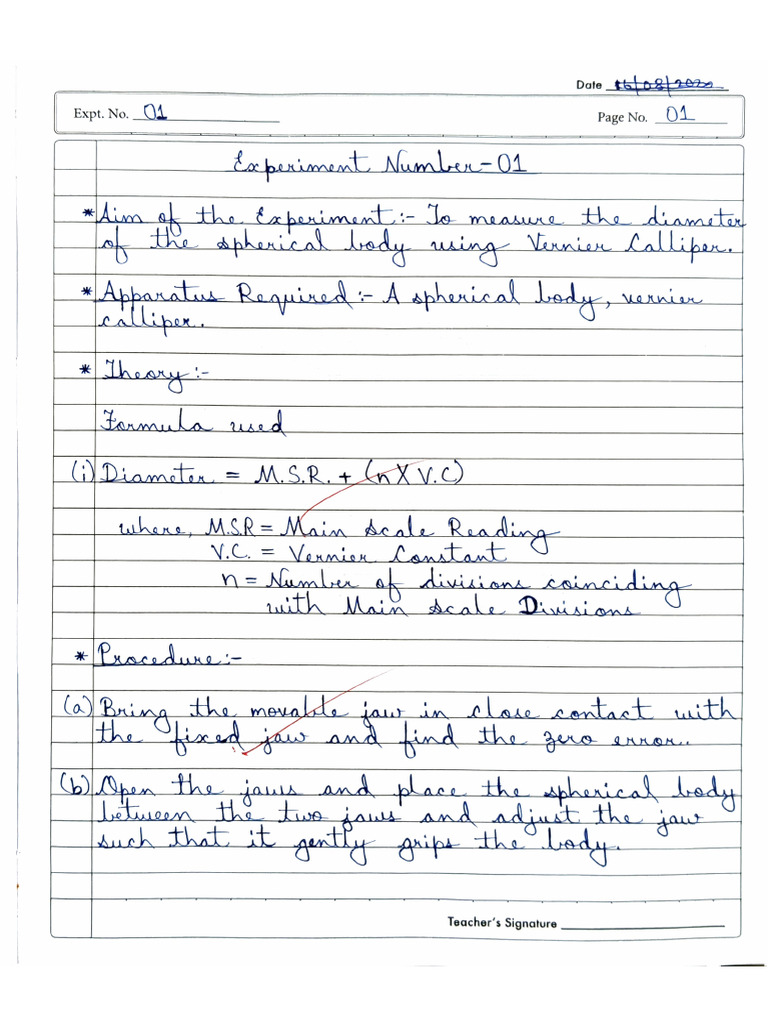 Date 16/08/2020
Expt. No. 01
Page No. 01
Experiment Number-01
* Aim of the Experiment:- To measure the diameter
of the spherical body using Vernier Calliper.
* Apparatus Required:- A spherical body, vernier
calliper.
* Theory:-
Formula used
(i) Diameter = M.S.R. + (n X V.C)
where, M.S.R = Main Scale Reading
V.C. = Vernier Constant
n = Number of divisions coinciding
with Main Scale Divisions
* Procedure:-
(a) Bring the movable jaw in close contact with
the fixed jaw and find the zero error..
(b) Open the jaws and place the spherical body
between the two jaws and adjust the jaw
such that it gently grips the body.
Teacher's Signature